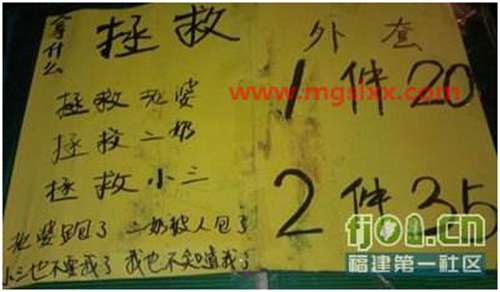 拿什么
拯救
拯救老婆
拯救二奶
拯救小三
老婆跑了 二奶被人包了
小三也不要我了 我也不知道我了
外套
1件20
2件35
www.mgslxx.com
fj01.cn
福建第一社区